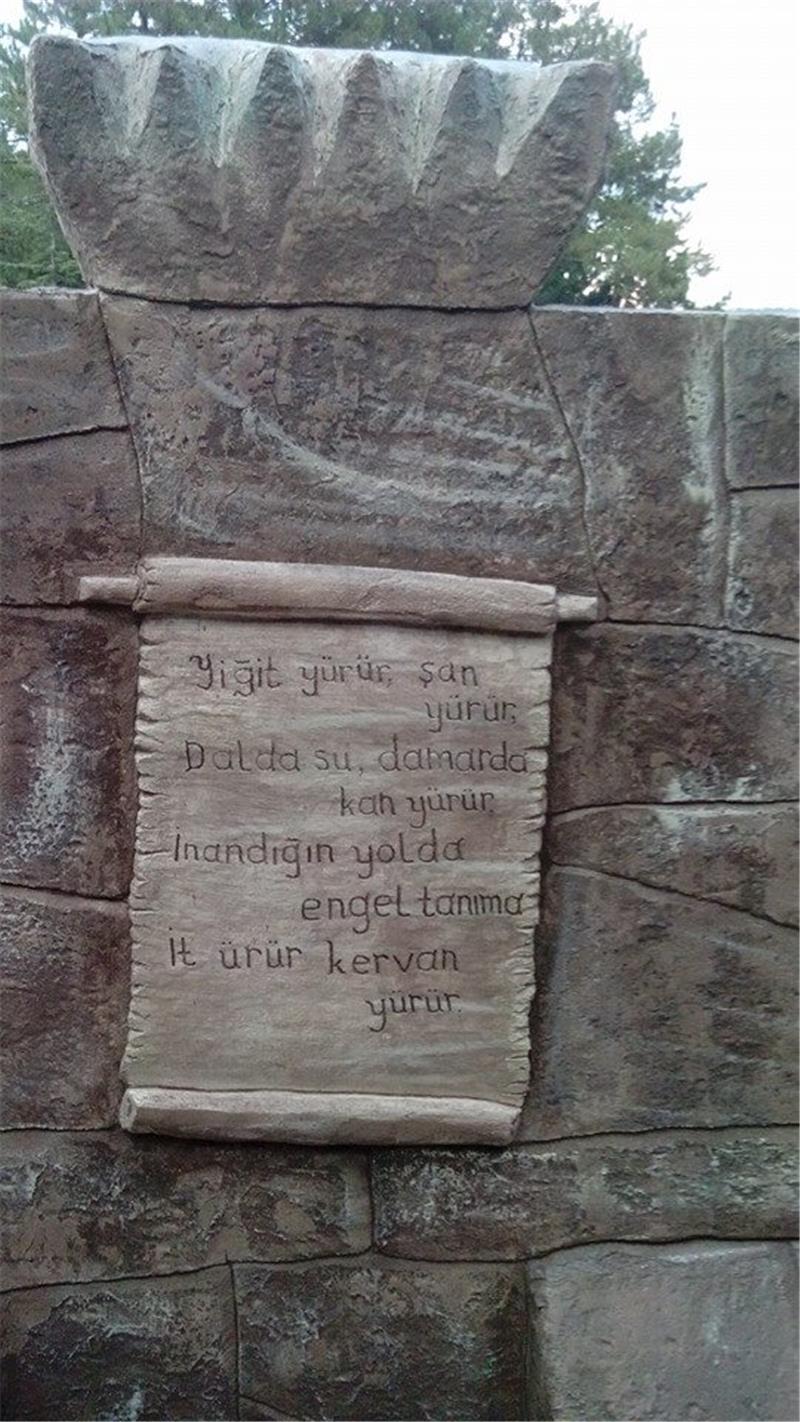 Yiğit yürür, şan
yürür,
Dalda su, damarda
kan yürür,
İnandığın yolda
engel tanıma
İt ürür kervan
yürür.